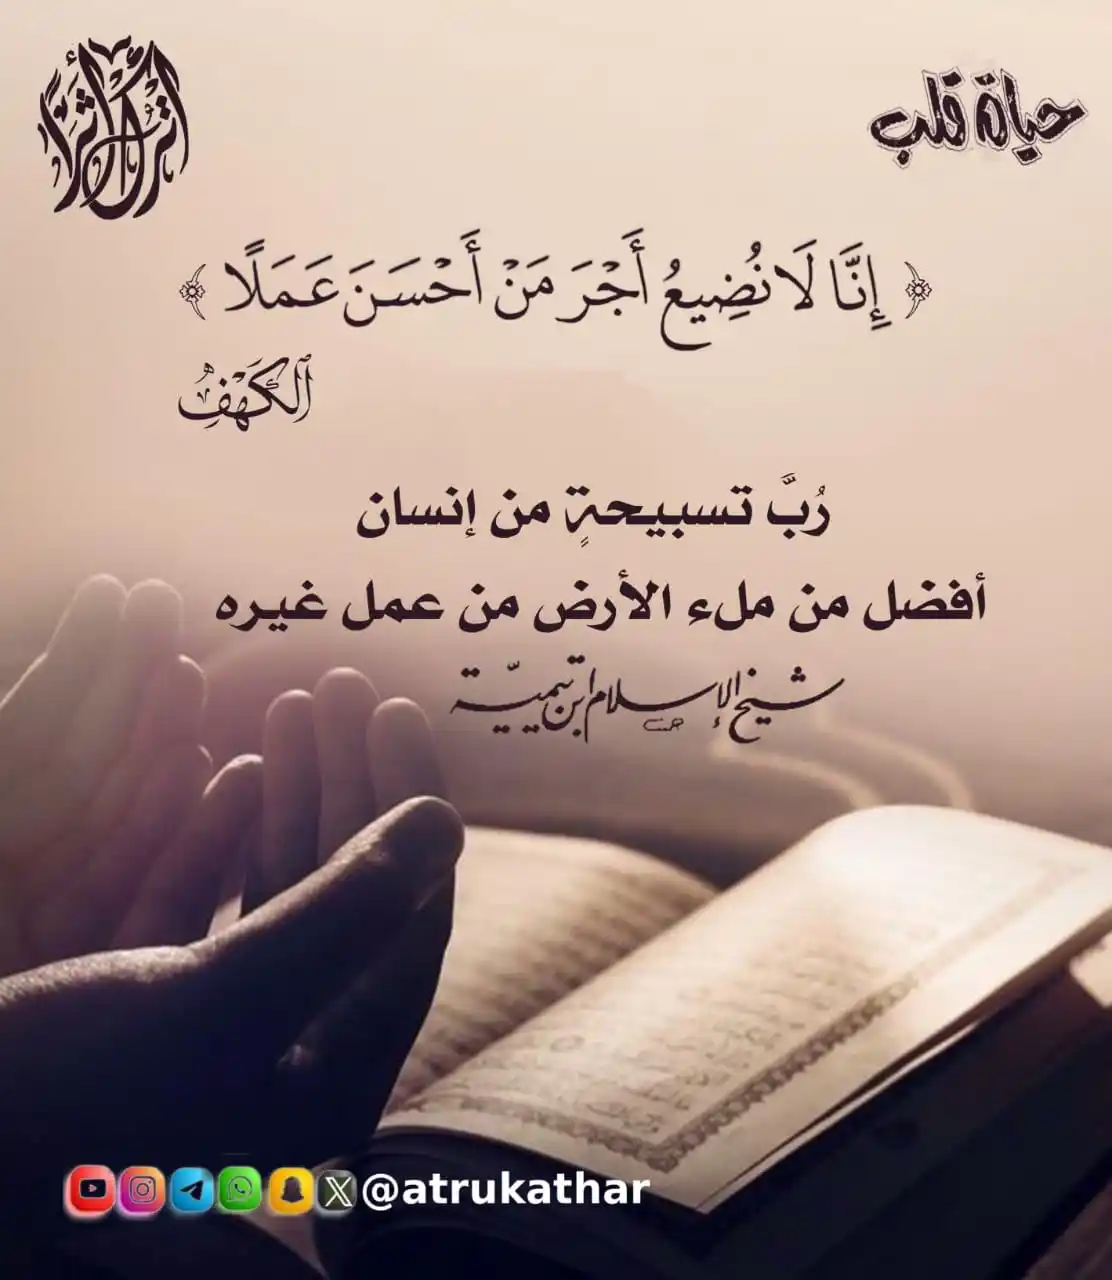 حياة قلب
أترك أثرًا
﴿ إِنَّا لَا نُضِيعُ أَجْرَ مَنْ أَحْسَنَ عَمَلًا ﴾
ٱلْكَهْفِ
رُبَّ تسبيحةٍ من إنسان
أفضل من ملء الأرض من عمل غيره
شيخ الإسلام ابن تيميّة
@atrukathar